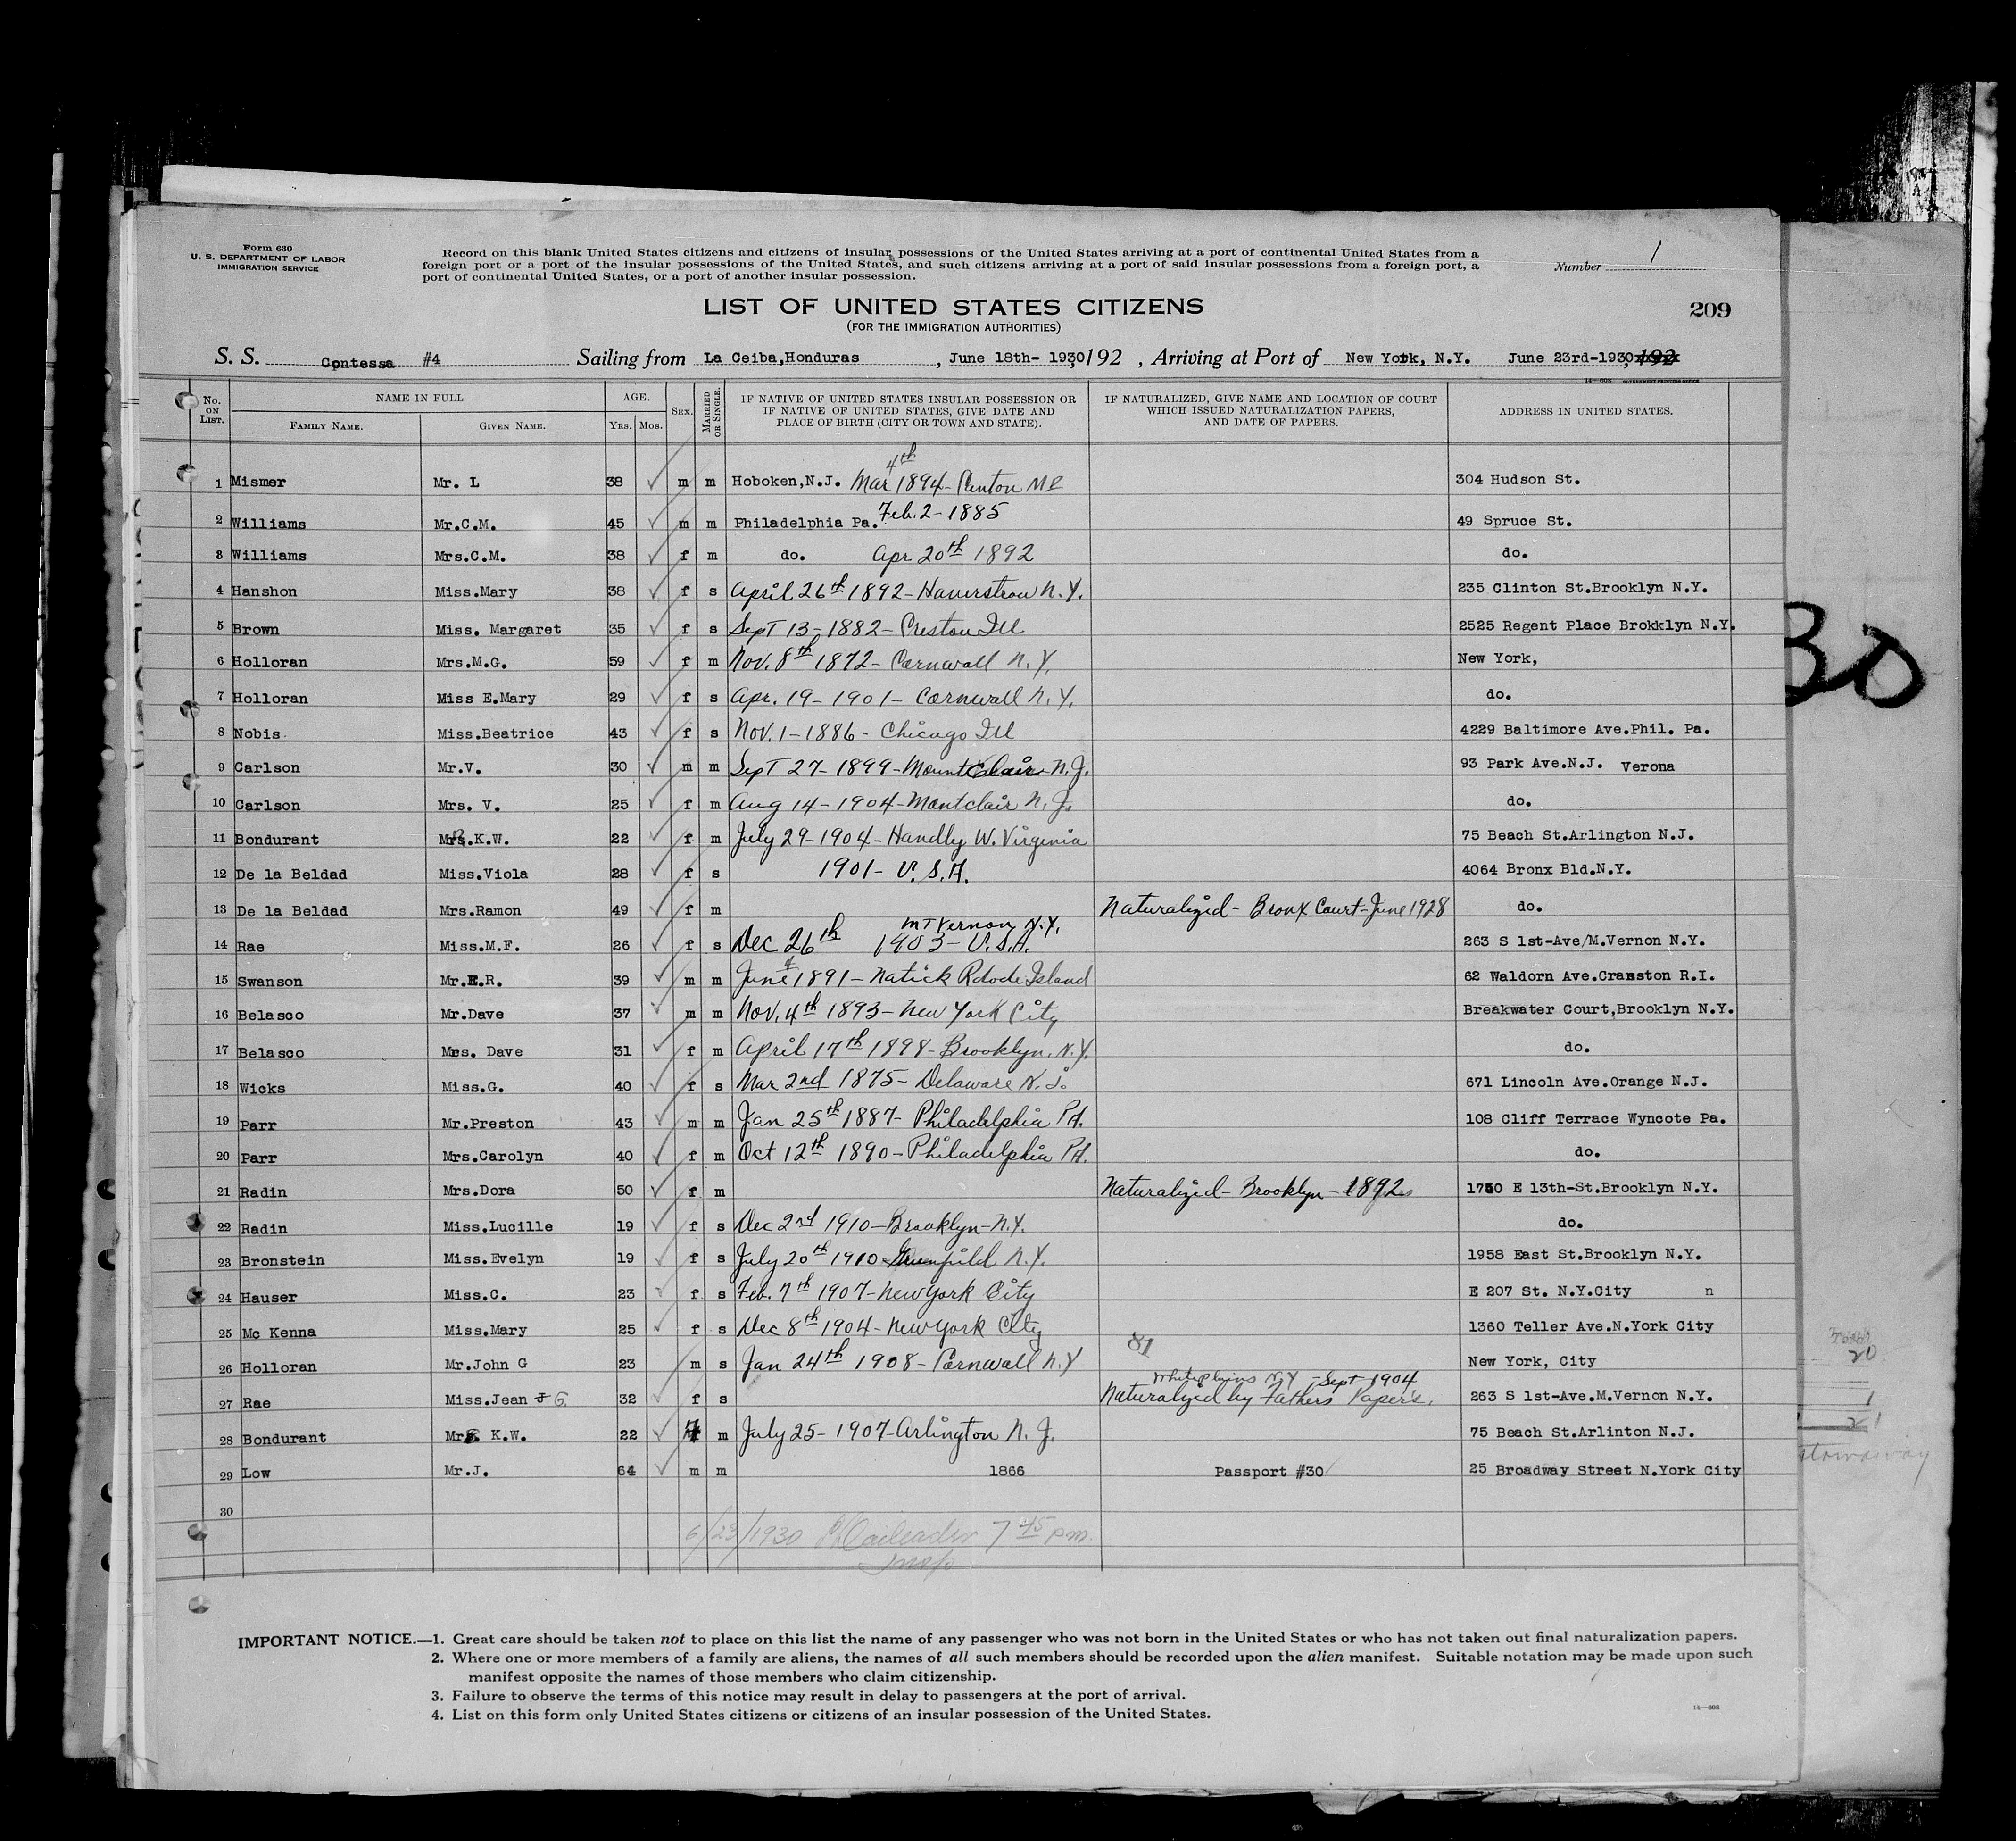 Form 630
U. S. DEPARTMENT OF LABOR
IMMIGRATION SERVICE
Record on this blank United States citizens and citizens of insular possessions of the United States arriving at a port of continental United States from a
foreign port or a port of the insular possessions of the United States, and such citizens arriving at a port of said insular possessions from a foreign port, a
port of continental United States, or a port of another insular possession.
Number 1
LIST OF UNITED STATES CITIZENS
(FOR THE IMMIGRATION AUTHORITIES)
209
S. S. Contessa #4 Sailing from La Ceiba,Honduras , June 18th- 1930,192 , Arriving at Port of New York, N.Y. June 23rd-1930, 192
14—608 GOVERNMENT PRINTING OFFICE
No. ON LIST. NAME IN FULL AGE. SEX. MARRIED OR SINGLE. IF NATIVE OF UNITED STATES INSULAR POSSESSION OR IF NATIVE OF UNITED STATES, GIVE DATE AND PLACE OF BIRTH (CITY OR TOWN AND STATE). IF NATURALIZED, GIVE NAME AND LOCATION OF COURT WHICH ISSUED NATURALIZATION PAPERS, AND DATE OF PAPERS. ADDRESS IN UNITED STATES.
FAMILY NAME. GIVEN NAME. YRS. MOS.
4th
1 Mismer Mr. L 38 m m Hoboken,N.J. Mar 1894- 304 Hudson St.
2 Williams Mr.C.M. 45 m m Philadelphia Pa. Feb. 2- 1885 49 Spruce St.
3 Williams Mrs.C.M. 38 f m do. Apr 20th 1892 do.
4 Hanshon Miss.Mary 38 f s April 26th 1892- Haverstraw N.Y. 235 Clinton St.Brooklyn N.Y.
5 Brown Miss. Margaret 35 f s Sept 13- 1882- Creston Ill 2525 Regent Place Brokklyn N.Y.
6 Holloran Mrs.M.G. 59 f m Nov. 8th 1872- Cornwall N.Y. New York,
7 Holloran Miss E.Mary 29 f s Apr. 19- 1901- Cornwall N.Y. do.
8 Nobis Miss.Beatrice 43 f s Nov. 1- 1886- Chicago Ill 4229 Baltimore Ave.Phil. Pa.
9 Carlson Mr.V. 30 m m Sept 27- 1899- Mountclair N.J. 93 Park Ave.N.J. Verona
10 Carlson Mrs. V. 25 f m Aug 14- 1904- Montclair N.J. do.
11 Bondurant Mrs.K.W. 22 f m July 29- 1904- Handley W. Virginia 75 Beach St.Arlington N.J.
12 De la Beldad Miss.Viola 28 f s 1901- U.S.A. 4064 Bronx Bld.N.Y.
13 De la Beldad Mrs.Ramon 49 f m Naturalized- Bronx Court- June 1928 do.
Mt Vernon N.Y.
14 Rae Miss.M.F. 26 f s Dec 26th 1903- U.S.A. 263 S 1st-Ave/M.Vernon N.Y.
15 Swanson Mr.E.R. 39 m m June 1891- Natick Rhode Island 62 Waldorn Ave.Cranston R.I.
16 Belasco Mr.Dave 37 m m Nov. 4th 1893- New York City Breakwater Court,Brooklyn N.Y.
17 Belasco Mrs. Dave 31 f m April 17th 1898- Brooklyn. N.Y. do.
18 Wicks Miss.G. 40 f s Mar 2nd 1875- Delaware N.J. 671 Lincoln Ave.Orange N.J.
19 Parr Mr.Preston 43 m m Jan 25th 1887- Philadelphia PA. 108 Cliff Terrace Wyncote Pa.
20 Parr Mrs.Carolyn 40 f m Oct 12th 1890- Philadelphia PA. do.
21 Radin Mrs.Dora 50 f m Naturalized- Brooklyn- 1892 1750 E 13th-St.Brooklyn N.Y.
22 Radin Miss.Lucille 19 f s Dec 2nd 1910- Brooklyn- N.Y. do.
23 Bronstein Miss.Evelyn 19 f s July 20th 1910- N.Y. 1958 East St.Brooklyn N.Y.
24 Hauser Miss.C. 23 f s Feb. 7th 1907- New York City E 207 St. N.Y.City n
25 Mc Kenna Miss.Mary 25 f s Dec 8th 1904- New York City 1360 Teller Ave.N.York City
81
26 Holloran Mr.John G 23 m s Jan 24th 1908- Cornwall N.Y New York, City
Whiteplains N.Y - Sept 1904
27 Rae Miss.Jean G. 32 f s Naturalized by Fathers Papers. 263 S 1st-Ave.M.Vernon N.Y.
28 Bondurant Mr. K.W. 22 m July 25- 1907- Arlington N.J. 75 Beach St.Arlinton N.J.
29 Low Mr.J. 64 m m 1866 Passport #30 25 Broadway Street N.York City
30
6/23/1930 7 45 P.m.
Insp
IMPORTANT NOTICE.—1. Great care should be taken not to place on this list the name of any passenger who was not born in the United States or who has not taken out final naturalization papers.
2. Where one or more members of a family are aliens, the names of all such members should be recorded upon the alien manifest. Suitable notation may be made upon such
manifest opposite the names of those members who claim citizenship.
3. Failure to observe the terms of this notice may result in delay to passengers at the port of arrival.
4. List on this form only United States citizens or citizens of an insular possession of the United States.
14—608
30
Total
20
1
21
stowaway